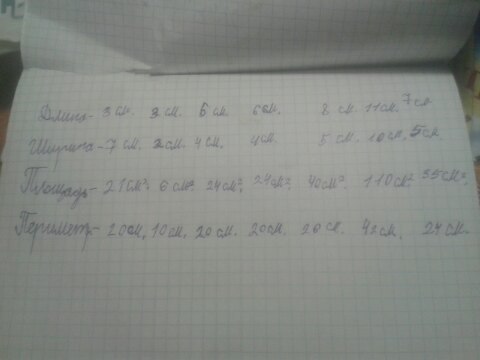 Длина- 3 см. 3 см. 6 см. 6 см. 8 см. 11 см. 7 см
Ширина- 7 см. 2 см. 4 см. 4 см. 5 см. 10 см. 5 см.
Площадь- 21 см². 6 см². 24 см²; 24 см²; 40 см². 110 см² 35 см².
Периметр- 20 см, 10 см, 20 см. 20 см. 20 см. 42 см. 24 см.